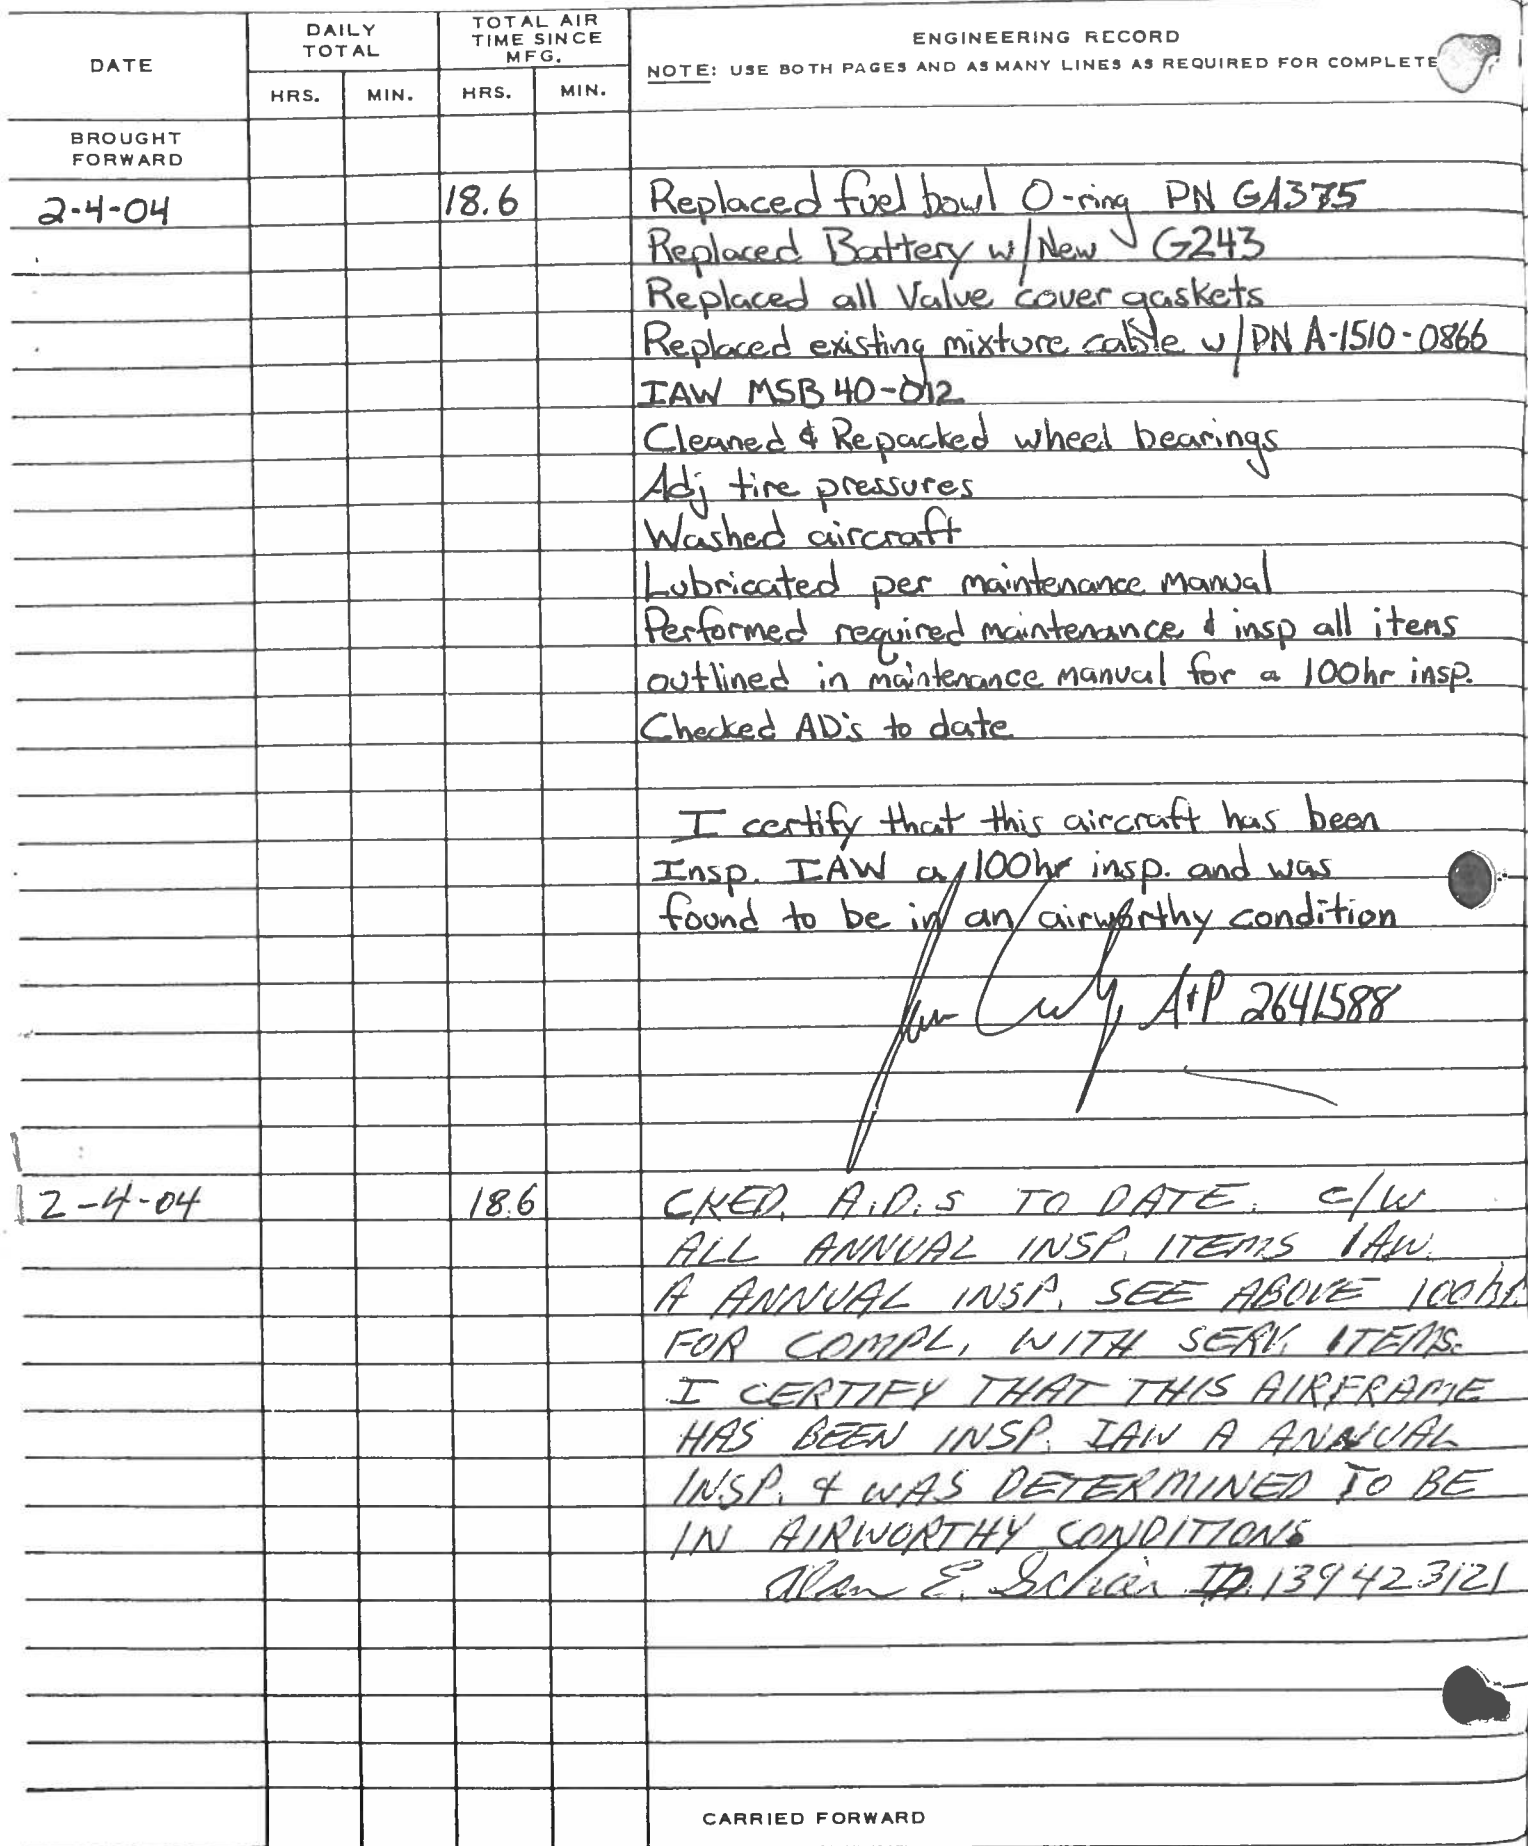 DATE
DAILY TOTAL
TOTAL AIR TIME SINCE MFG.
ENGINEERING RECORD
NOTE: USE BOTH PAGES AND AS MANY LINES AS REQUIRED FOR COMPLETE
HRS. MIN. HRS. MIN.
BROUGHT FORWARD
2-4-04 18.6 Replaced fuel bowl O-ring PN GA375
Replaced Battery w/New G243
Replaced all Valve cover gaskets
Replaced existing mixture cable w/PN A-1510-0866
IAW MSB 40-012
Cleaned & Repacked wheel bearings
Adj tire pressures
Washed aircraft
Lubricated per maintenance manual
Performed required maintenance & insp all items
outlined in maintenance manual for a 100hr insp.
Checked AD's to date
I certify that this aircraft has been
Insp. IAW a 100hr insp. and was
found to be in an airworthy condition
A+P 2641588
2-4-04 18.6 CKED. A.D.S TO DATE. C/W
ALL ANNUAL INSP. ITEMS IAW.
A ANNUAL INSP. SEE ABOVE 100hr
FOR COMPL. WITH SERV. ITEMS.
I CERTIFY THAT THIS AIRFRAME
HAS BEEN INSP. IAW A ANNUAL
INSP. & WAS DETERMINED TO BE
IN AIRWORTHY CONDITIONS
Alan E. 139423121
CARRIED FORWARD